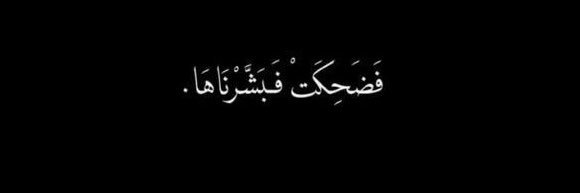 فَضَحِكَتْ فَبَشَّرْنَاهَا.